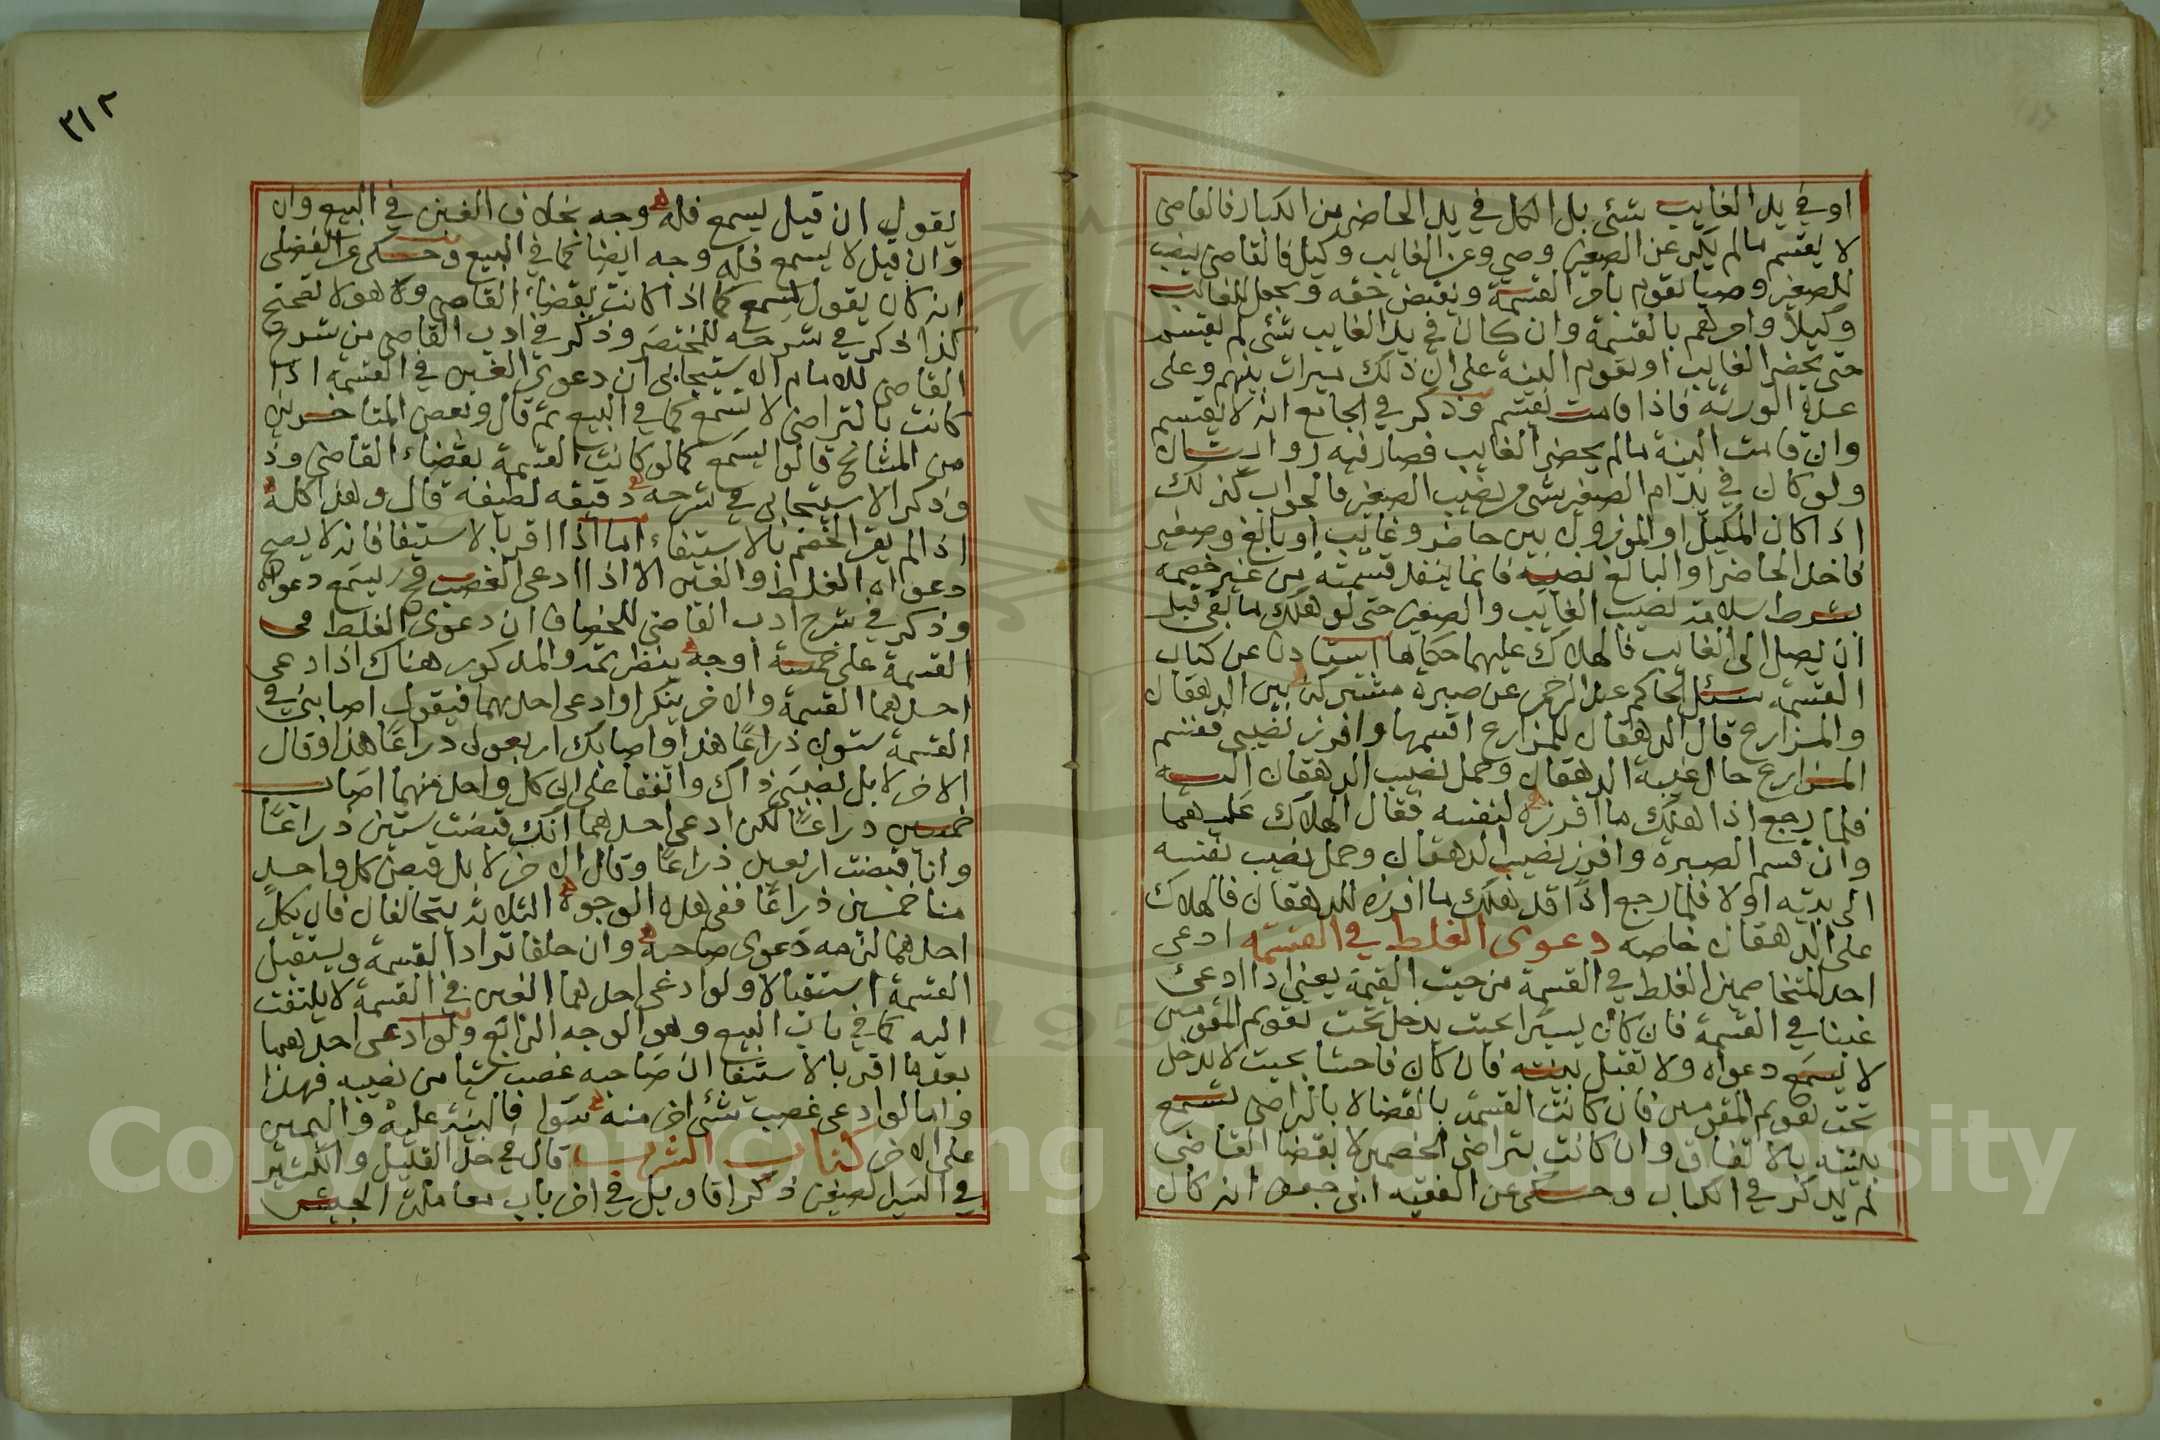 او في يد الغايب شئ بل الكل في يد الحاضر من الكبار فالقاضي
لا يقسم مالم يكن عن الصغير وصي وعن الغايب وكيل فالقاضي ينصب
للصغير وصيا يقوم بامر القسمة ويقبض حقه ويجعل للغائب
وكيلا وامرهم بالقسمة وان كان في يد الغايب شئ لم يقسم
حتى يحضر الغايب او يقوم البينة على ان ذلك ميراث بينهم وعلى
عدة الورثة فاذا قامت تقسم وذكر في الجامع انه لا يقسم
وان قامت البينة مالم يحضر الغايب فصار فيه روايتان
ولو كان في يد ام الصغير شئ من نصيب الصغير فالجواب كذلك
اذا كان المكيل او الموزون بين حاضر وغايب او بالغ وصغير
فاخذ الحاضر او البالغ نصيبه فانما ينفذ قسمته من غير خصمه
بشرط سلامة نصيب الغايب والصغير حتى لو هلك ما بقي قبل
ان يصل الى الغايب فالهلاك عليهما حكاها استادنا عن كتاب
القسمة سئل الحاكم عبد الرحمن عن صبرة مشتركة بين الدهقان
والمزارع قال الدهقان للمزارع اقسمها وافرز نصيبي فقسم
المزارع حال غيبة الدهقان وحمل نصيب الدهقان اليه
فلما رجع اذا هلك ما افرزه لنفسه فقال الهلاك عليهما
وان قسم الصبرة وافرز نصيب الدهقان وحمل نصيب نفسه
الى بيته اولا فلما رجع اذا قد هلك ما افرزه للدهقان فالهلاك
على الدهقان خاصة دعوى الغلط في القسمة ادعى
احد المتخاصمين الغلط في القسمة من حيث القيمة يعني اذا ادعى
غبنا في القسمة فان كان يسيرا بحيث يدخل تحت تقويم المقومين
لا يسمع دعواه ولا تقبل بينته فان كان فاحشا بحيث لا يدخل
تحت تقويم المقومين فان كانت القسمة بالقضا لا بالتراضي تسمع
بينته بالاتفاق وان كانت بتراضي الخصمين لا بقضا القاضي
لم يذكر في الكتاب وحكى عن الفقيه ابي جعفر انه كان
٣١٢
يقول ان قيل يسمع فله وجه بخلاف الغبن في البيع وان
وان قيل لا يسمع فله وجه ايضا كما في البيع وحكى عن الفضلي
انه كان يقول تسمع كما اذا كانت بقضاء القاضي
كذا ذكر في شرحه للمختصر وذكر في ادب القاضي من شرح
القاضي للامام الاسبيجابي ان دعوى الغبن في القسمة اذا
كانت بالتراضي لا تسمع كما في البيع ثم قال وبعض المتاخرين
من المشائخ قالوا يسمع كما لو كانت القسمة بقضاء القاضي وذ
وذكر الاسبيجابي في شرحه دقيقة لطيفة قال وهذا كله
اذا لم يقر الخصم بالاستيفاء اما اذا اقر بالاستيفا فانه لا يصح
دعواه الغلط والغبن الا اذا ادعى الغصب فح يسمع دعواه
وذكر في شرح ادب القاضي للخصاف ان دعوى الغلط في
القسمة على خمسة اوجه ينظر ثمة والمذكور هناك اذا ادعى
احدهما القسمة والاخر ينكر او ادعى احدهما فيقول اصابني في
القسمة ستون ذراعا هذا واصابك اربعون ذراعا هذا وقال
الاخر لا بل نصيبي ذاك واتفقا على ان كل واحد منهما اصاب
خمسين ذراعا لكن ادعى احدهما انك قبضت ستين ذراعا
وانا قبضت اربعين ذراعا وقال الاخر لا بل قبض كل واحد
منا خمسين ذراعا ففي هذه الوجوه الثلاثة يتحالفان فان نكل
احدهما لزمه دعوى صاحبه وان حلفا ترادا القسمة ويستقبل
القسمة استقبالا ولو ادعى احدهما الغبن في القسمة لا يلتفت
اليه كما في باب البيع وهو الوجه الرابع ولو ادعى احدهما
بعدما اقر بالاستيفا ان صاحبه غصب شيا من نصيبه فهذا
وما لو ادعى غصب شئ اخر منه سوا فالبينة عليه واليمين
على الاخر كتاب الشرب قال في حد القليل والكثير
في ذكر اقاويل في اخر باب معاملة الجيش